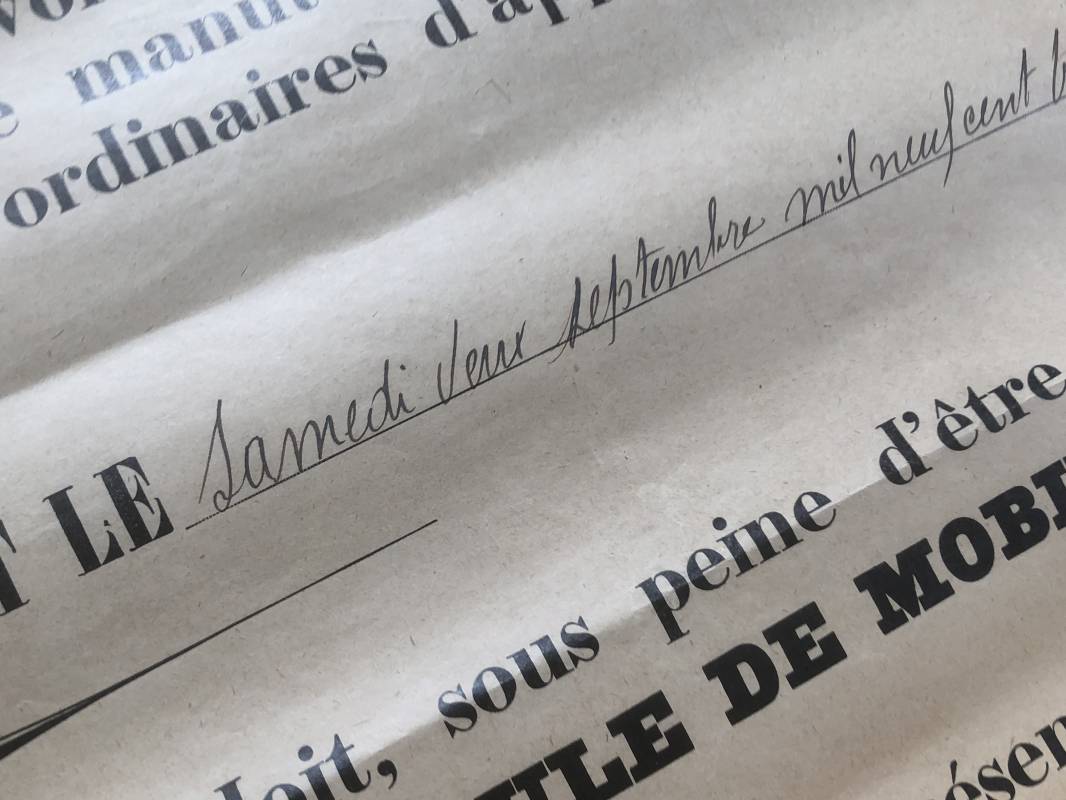 manut
ordinaires d'app
LE Samedi deux septembre mil neuf cent t
doit, sous peine d'être
ULE DE MOBI
ésen